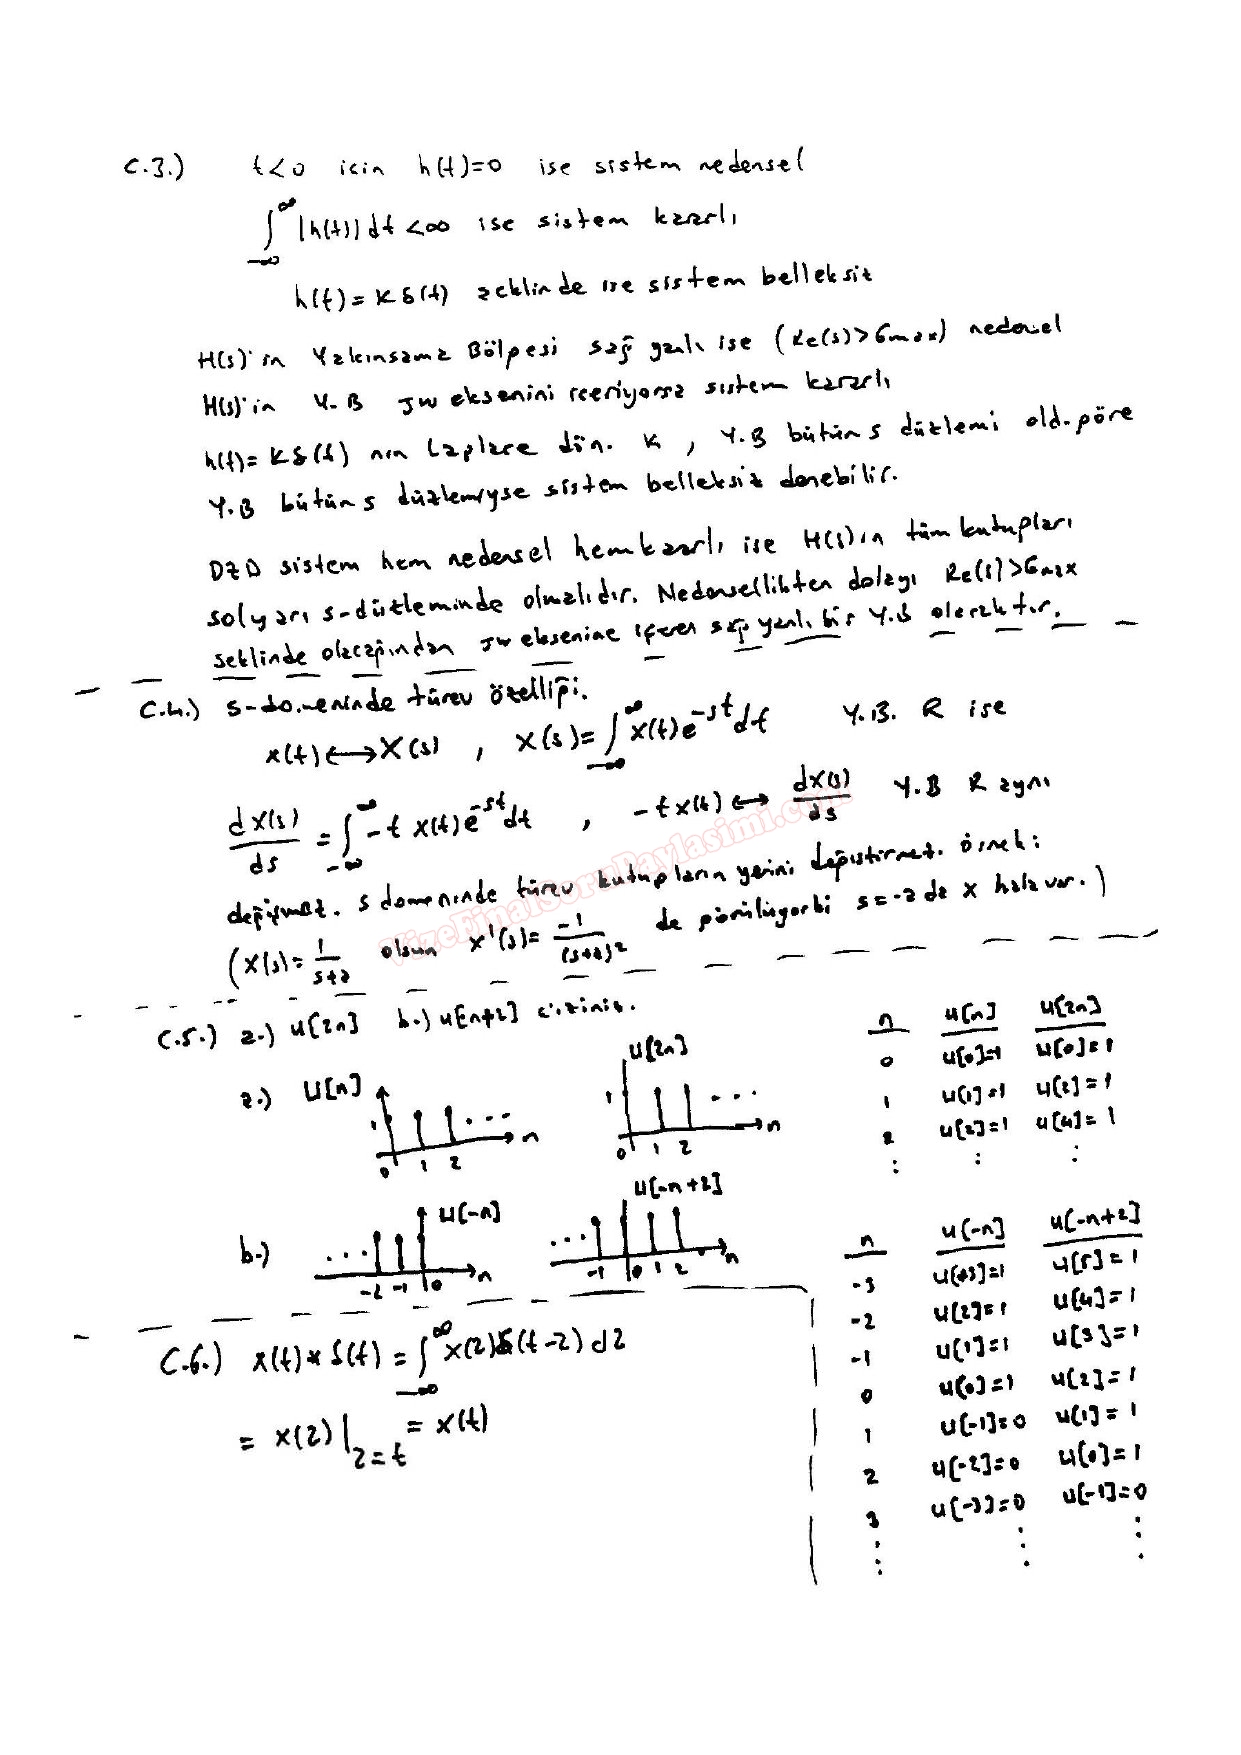 C.3.) t<0 icin h(t)=0 ise sistem nedensel
∫_{-∞}^{∞} |h(t)| dt <∞ ise sistem kararlı
h(t)=Kδ(t) şeklinde ise sistem belleksiz
H(s)'in Yakınsama Bölgesi sağ yanlı ise (Re(s)>σmax) nedensel
H(s)'in Y.B jw eksenini iceriyorsa sistem kararlı
h(t)=Kδ(t) nın Laplace dön. K , Y.B bütün s düzlemi old. göre
Y.B bütün s düzlemiyse sistem belleksiz denebilir.
DZD sistem hem nedensel hem kararlı ise H(s)in tüm kutupları
sol yarı s-düzleminde olmalıdır. Nedensellikten dolayı Re(s)>σmax
seklinde olacağından jw eksenine içeren sağ yanlı bir Y.B olacaktır.
C.4.) s-domeninde türev özelliği.
x(t)↔X(s) , X(s)=∫_{-∞}^{∞} x(t)e^{-st}dt Y.B. R ise
dX(s)/ds = ∫_{-∞}^{∞} -t x(t)e^{-st}dt , -tx(t)↔ dX(s)/ds Y.B R aynı
değişmez. s domeninde türev kutupların yerini değiştirmez. örnek:
(X(s)= 1/(s+a) olsun X'(s)= -1/(s+a)^2 de görülüyorki s=-a da X hala var.)
C.5.) a.) u[2n] b.) u[n+2] ciziniz.
a.) U[n]
1
0 1 2 ... n
u[2n]
1
0 1 2 ... n
n u[n] u[2n]
0 u[0]=1 u[0]=1
1 u[1]=1 u[2]=1
2 u[2]=1 u[4]=1
⋮ ⋮ ⋮
b.) u[-n]
... -2 -1 0 n
u[-n+2]
... -1 0 1 2 n
n u[-n] u[-n+2]
-3 u[3]=1 u[5]=1
-2 u[2]=1 u[4]=1
-1 u[1]=1 u[3]=1
0 u[0]=1 u[2]=1
1 u[-1]=0 u[1]=1
2 u[-2]=0 u[0]=1
3 u[-3]=0 u[-1]=0
⋮ ⋮ ⋮
C.6.) x(t)*δ(t) = ∫_{-∞}^{∞} x(2)δ(t-2) d2
= x(2)|_{2=t} = x(t)
VizeFinalSoruPaylasimi.com